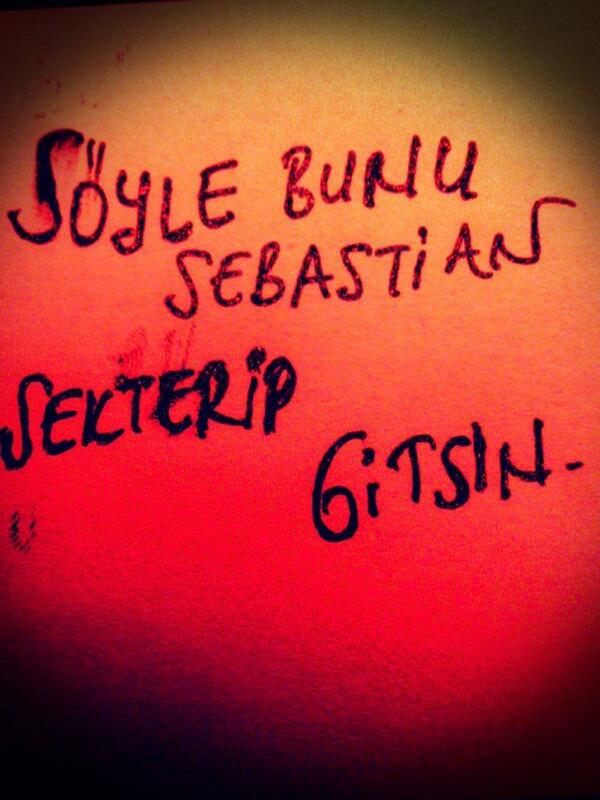 SÖYLE BUNU
SEBASTiAN
SEKTERiP
GiTSIN.